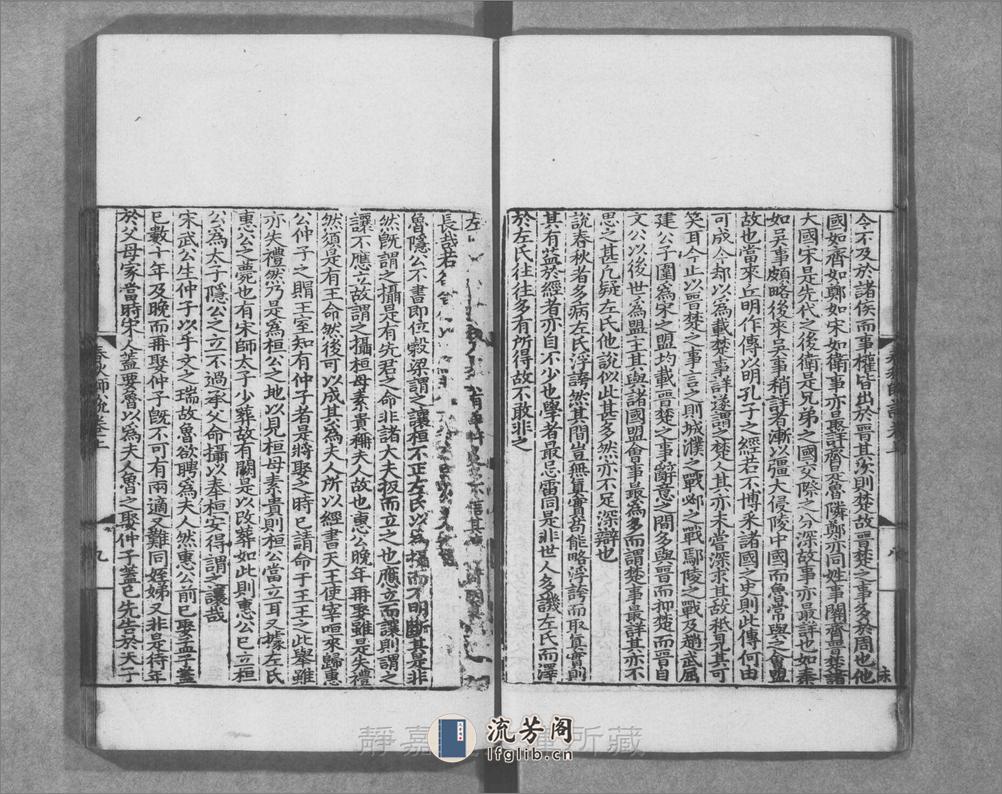 令不及於諸侯而事權皆出於晉其次則楚故晉楚之事多於周也他
國如齊如鄭如宋如衛事亦最詳齊是魯隣鄭亦同姓事關齊晉楚諸
大國宋是先代之後衛是兄弟之國交際之分深故事亦最詳也如秦
如吳事頗略後來吳事稍詳者漸以彊大侵陵中國而魯常與之會盟
故也當來丘明作傳以明孔子之經若不博采諸國之史則此傳何由
可成今却以為載楚事詳遂謂楚人其亦未嘗深求其故秖見其可
笑耳今止以晉楚之事言之則城濮之戰邲之戰鄢陵之戰及趙武屈
建公子圍為宋之盟均載晉楚之事辭意之間多與晉而抑楚而晉自
文公以後世為盟主其與諸國盟會事最為多而謂楚事最詳其亦不
思之甚凡疑左氏他說似此甚多然亦不足深辯也
說春秋者多病左氏浮誇然其間豈無眞實苟能略浮誇而取眞實則
其有益於經者亦自不少也學者最忌雷同是非世人多譏左氏而澤
於左氏往往多有所得故不敢非之
左
長哉若
魯隱公不書即位穀梁謂之讓桓不正左氏以為攝而不明斷其是非
然既謂之攝是有先君之命非諸大夫扳而立之也應立而讓則謂之
讓不應立故謂之攝桓母素貴稱夫人故也惠公晚年再娶雖是失禮
然須是有王命然後可以成其為夫人所以經書天王使宰咺來歸惠
公仲子之賵王室知有仲子者是將娶之時已請命于王王之此舉雖
亦失禮然乃是為桓公之地以見桓母素貴則桓公當立耳又據左氏
惠公之薨也有宋師太子少葬故有闕是以改葬如此則惠公已立桓
公為太子隱公之立不過承父命攝以奉桓安得謂之讓哉
宋武公生仲子以手文之瑞故魯欲聘為夫人然惠公前已娶孟子蓋
已數十年及晚而再娶仲子旣不可有兩適又難同姪娣又非是待年
於父母家當時宋人蓋要魯以為夫人魯之娶仲子蓋已先告於天子
春秋師說卷上
九
靜嘉堂文庫所藏
流芳阁
lfglib.cn